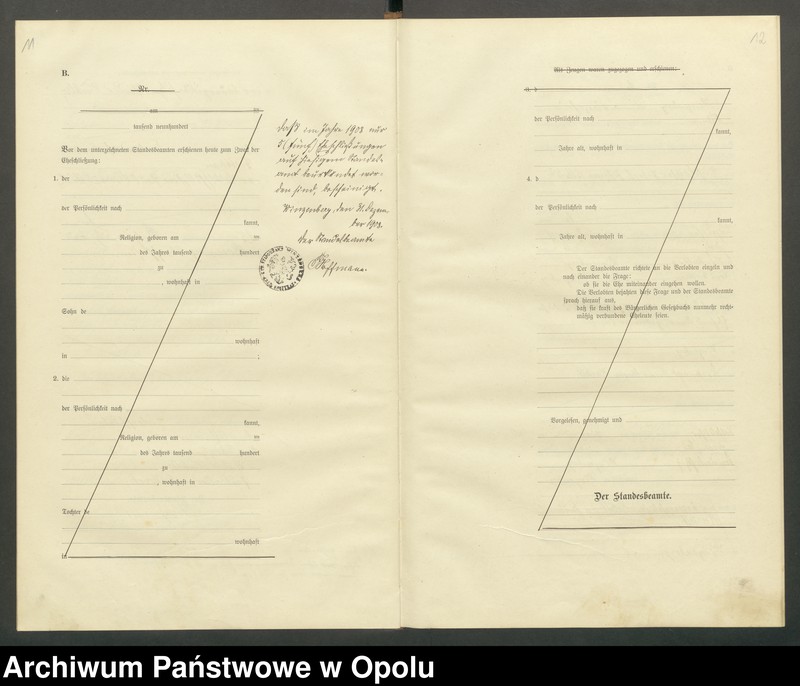 11
B.
Nr.
am ten
tausend neunhundert
Vor dem unterzeichneten Standesbeamten erschienen heute zum Zweck der
Eheschließung:
1. der
der Persönlichkeit nach
kannt,
Religion, geboren am ten
des Jahres tausend hundert
zu
, wohnhaft in
Sohn de
wohnhaft
in ;
2. die
der Persönlichkeit nach
kannt,
Religion, geboren am ten
des Jahres tausend hundert
zu
, wohnhaft in
Tochter de
wohnhaft
in
Daß im Jahre 1903 nur
5 (fünf) Eheschließungen
auf hiesigem Standes-
amt beurkundet wor-
den sind, bescheinigt.
den 31. Dezem-
ber 1903.
Der Standesbeamte
Hoffmann.
12
Als Zeugen waren zugezogen und erschienen:
3. d
der Persönlichkeit nach
kannt,
Jahre alt, wohnhaft in
4. d
der Persönlichkeit nach
kannt,
Jahre alt, wohnhaft in
Der Standesbeamte richtete an die Verlobten einzeln und
nach einander die Frage:
ob sie die Ehe miteinander eingehen wollen.
Die Verlobten bejahten diese Frage und der Standesbeamte
sprach hierauf aus,
daß sie kraft des Bürgerlichen Gesetzbuchs nunmehr recht-
mäßig verbundene Eheleute seien.
Vorgelesen, genehmigt und
Der Standesbeamte.
Archiwum Państwowe w Opolu